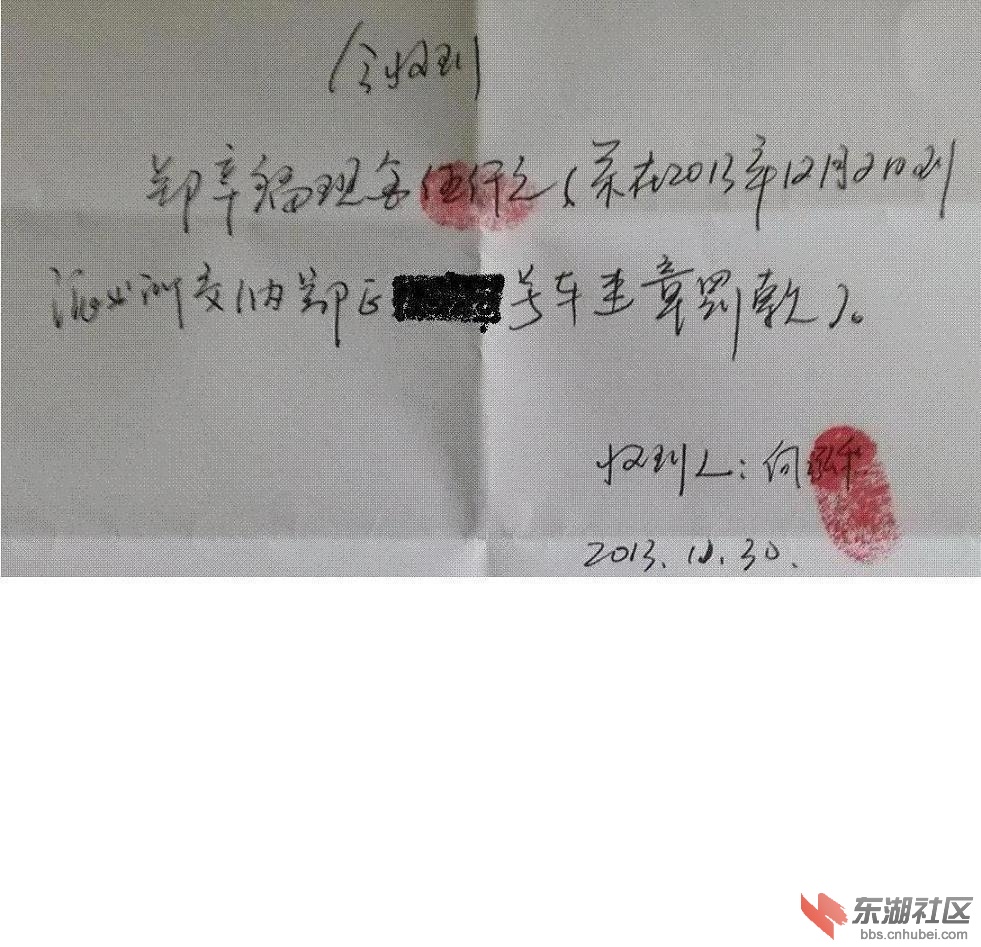 今收到
郑辛福现金伍仟元(若在2013年12月2日到
派出所交纳鄂E 号车违章罚款)。
收到人:何
2013.11.30.
东湖社区
bbs.cnhubei.com